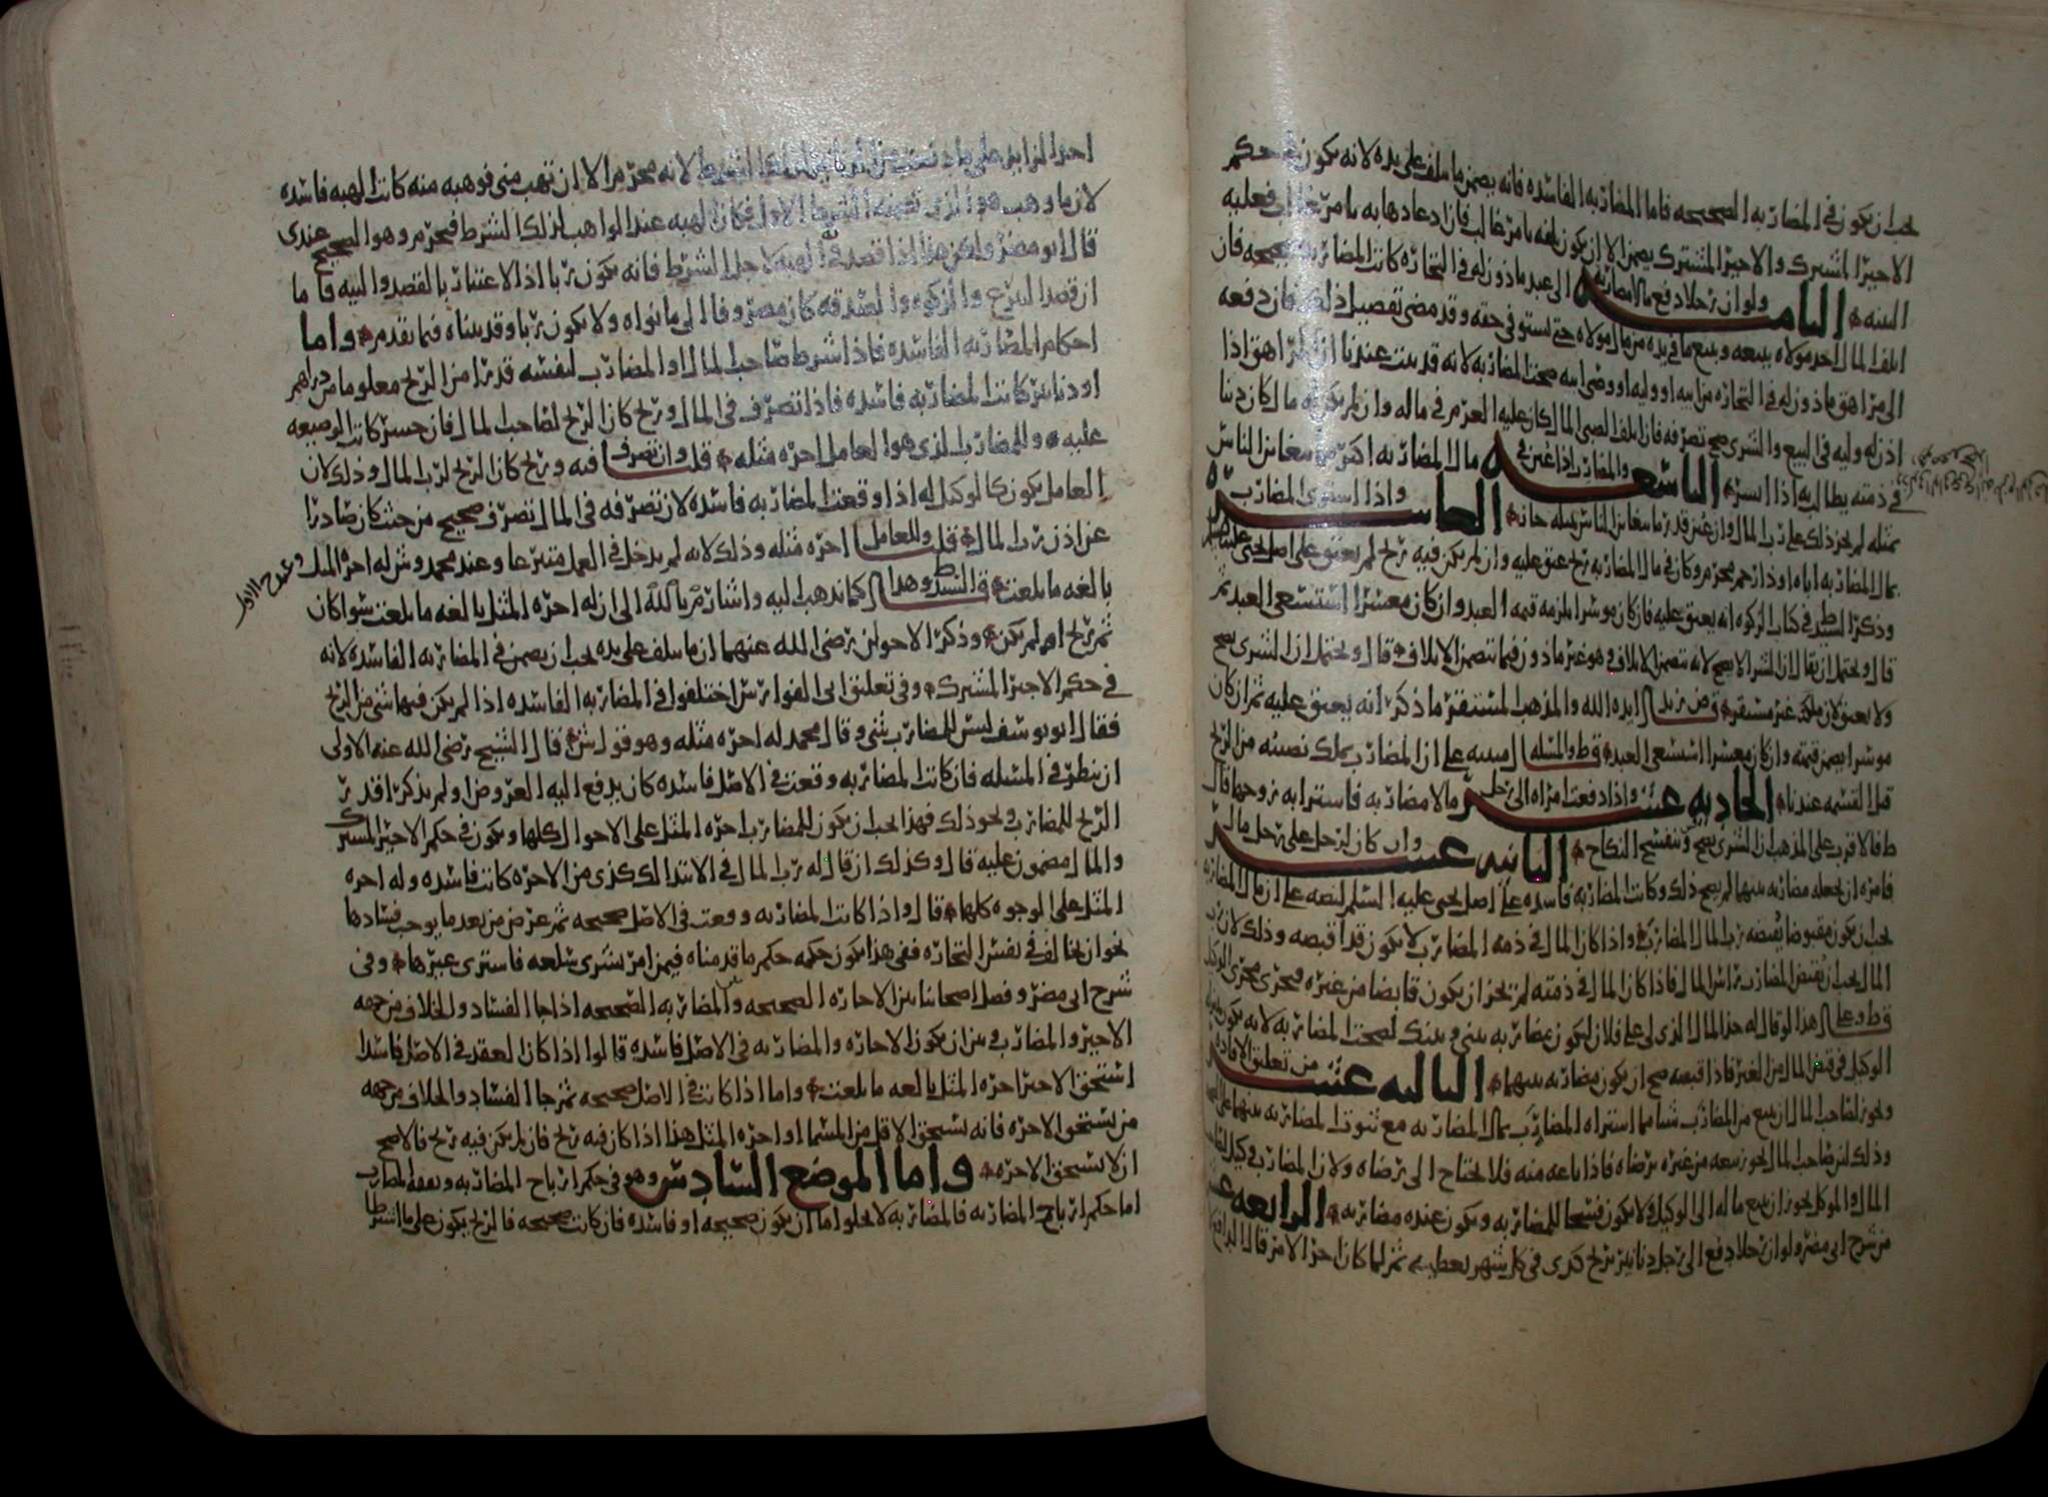 يجب ان يكون في المضاربه الصحيحه فاما المضاربه الفاسده فانه يضمن ما سلف على يده لانه يكون في حكم
الاجير المشترك والاجير المشترك يضمن الا ان يكون تلفه بامر غالب فان ادعا دهابه بامر غالب فعليه
البينه الثامنه ولو ان رجلا دفع مالا مضاربه الى عبد ماذون له في التجاره كانت المضاربه صحيحه فان
اتلف المال احد مولاه ببيعه وبيع ما في يده من مال مولاه حتى يستوفي حقه وقد مضى تفصيل ذلك فان دفعه
الى مراهق ماذون له في التجاره من ابيه او وليه او وصي ابيه صحت المضاربه لانه قد ثبت عندنا ان المراهق اذا
اذن له وليه في البيع والشرى صح تصرفه فان اتلف الصبي المال كان عليه الغرم في ماله وان لم يكن له مال كان دينا
في ذمته يطالب به اذا ايسر التاسعه والمضارب اذا غبن في مال المضاربه اكثر مما يتغابن الناس
بمثله لم يجز ذلك على رب المال وان غبن قدر ما يتغابن الناس بمثله جاز العاشره واذا اشترى المضارب
بمال المضاربه اباه او ذا رحم محرم وكان في مال المضاربه ربح عتق عليه وان لم يكن فيه ربح لم يعتق على اصل يحيى عليه السلم
وذكر السيد ط في كتاب الزكوه انه يعتق عليه فان كان موسرا يلزمه قيمه العبد وان كان معسرا استسعى العبد ثم
قال ويحتمل ان يقال ان الشرا لا يصح لانه يتضمن الاتلاف وهو غير ماذون فيما يتضمن الاتلاف قال ويحتمل ان الشرى يصح
ولا يعتق لان ملكه غير مستقر قص زيد ايده الله والمذهب المستقر ما ذكر انه يعتق عليه ثم ان كان
موسرا يضمن قيمته وان كان معسرا استسعى العبد قط والمسله مبنيه على ان المضارب يملك نصيبه من الربح
قبل القسمه عندنا الحاديه عشر واذا دفعت امراه الى رجل مالا مضاربه فاشترا به زوجها قال
ط فالاقرب على المذهب ان الشرى يصح وينفسخ النكاح الثانيه عشر وان كان لرجل على رجل مال
فامره ان يجعله مضاربه بينهما لم يصح ذلك وكانت المضاربه فاسده على اصل يحيى عليه السلم لنصه على ان مال المضاربه
يجب ان يكون مقبوضا يقبضه رب المال المضارب واذا كان المال في ذمه المضارب لا يكون قد اقبضه وذلك لان رب
المال يجب ان يقبض المضارب راس المال فاذا كان المال في ذمته لم يجز ان يكون قابضا من غيره فجرى مجرى الوكيل
قط وعلى هذا لو قال له خذ المال الذي لي على فلان ليكون مضاربه بيني وبينك لصحت المضاربه لانه يكون بمنزله
الوكيل في قبض المال من الغير فاذا قبضه صح ان يكون مضاربه بينهما الثالثه عشر من تعليق الافاده
ويجوز لصاحب المال ان يبيع من المضارب شيا مما اشتراه المضارب بمال المضاربه مع ثبوت المضاربه بينهما
وذلك لان صاحب المال يجوز بيعه من غيره برضاه فاذا باعه منه فلا يحتاج الى رضاه ولان المضارب وكيل لصاحب
المال والموكل يجوز ان يبيع ماله الى الوكيل ولا يكون فسخا للمضاربه ويكون عنده مضاربه الرابعه عشر
من شرح ابي مضر ولو ان رجلا دفع الى رجل دنانير بربح كدى في كل شهر يعطيه ثم لما كان اخر الامر قال الدافع
لان ما وهب هو الذي تضمنه الشرط الاول فكان الهبه عند الواهب لذلك الشرط فيحرم وهو الصحيح عندي
قال ابو مضر ولكن هذا اذا قصد في الهبه لاجل الشرط فانه يكون ربا اذ الاعتبار بالقصد والنيه فاما
ان قصد التبرع والزكوه والصدقه كان مصروفا الى ما نواه ولا يكون ربا وقد بيناه فيما تقدم واما
احكام المضاربه الفاسده فاذا شرط صاحب المال او المضارب لنفسه قدرا من الربح معلوما من دراهم
او دنانير كانت المضاربه فاسده فاذا تصرف في المال وربح كان الربح لصاحب المال فان خسر كانت الوضيعه
عليه وللمضارب الذي هو العامل اجره مثله قلت وان تصرف فيه وربح كان الربح لرب المال وذلك لان
العامل يكون كالوكيل له اذا وقعت المضاربه فاسده لان تصرفه في المال تصرف صحيح من حيث كان صادرا
عن اذن رب المال قلت وللعامل اجره مثله وذلك لانه لم يدخل في العمل متبرعا وعند محمد وش له اجره المثل
بالغه ما بلغت ق السيد ط وهذا كما نذهب اليه واشار م بالله الى ان له اجره المثل بالغه ما بلغت سوا كان
ثم ربح ام لم يكن وذكر الاخوان رضي الله عنهما ان ما سلف على يده يجب ان يضمن في المضاربه الفاسده لانه
في حكم الاجير المشترك وفي تعليق ابي الفوارس اختلفوا في المضاربه الفاسده اذا لم يكن فيها شي من الربح
فقال ابو يوسف ليس للمضارب شي وقال محمد له اجره مثله وهو قول ش قال الشيخ رضي الله عنه الاولى
ان ينظر في المسله فان كانت المضاربه وقعت في الاصل فاسده كان يدفع اليه العروض او لم يذكرا قدر
الربح للمضارب ونحو ذلك فهذا يجب ان يكون للمضارب اجره المثل على الاحوال كلها ويكون في حكم الاجير المشترك
والمال مضمون عليه قال وكذلك ان قال له رب المال في الابتدا لك كذى من الاجره كانت فاسده وله اجره
المثل على الوجوه كلها قال واذا كانت المضاربه وقعت في الاصل صحيحه ثم عرض من بعد ما يوجب فسادها
نحو ان يخالف في نفس التجاره ففي هذا يكون حكمه حكم ما قدمناه فيمن امر بشرى سلعه فاشترى غيرها وفي
شرح ابي مضر وفصل اصحابنا بين الاجاره الصحيحه وبين المضاربه الصحيحه اذا جا الفساد والخلاف من جهه
الاجير والمضارب وبين ان يكون الاجاره والمضاربه في الاصل فاسده قالوا اذا كان العقد في الاصل فاسدا
استحق الاجير اجره المثل بالغه ما بلغت واما اذا كانت في الاصل صحيحه ثم جا الفساد والخلاف من جهه
من يستحق الاجره فانه يستحق الاقل من المسما او اجره المثل هذا اذا كان فيه ربح فان لم يكن فيه ربح فالاصح
ان لا يستحق الاجره واما الموضع السادس وهو في حكم ارباح المضاربه ونفقه المضارب
اما حكم ارباح المضاربه فالمضاربه لا يخلو اما ان يكون صحيحه او فاسده فان كانت صحيحه فالربح يكون على ما اشترطا